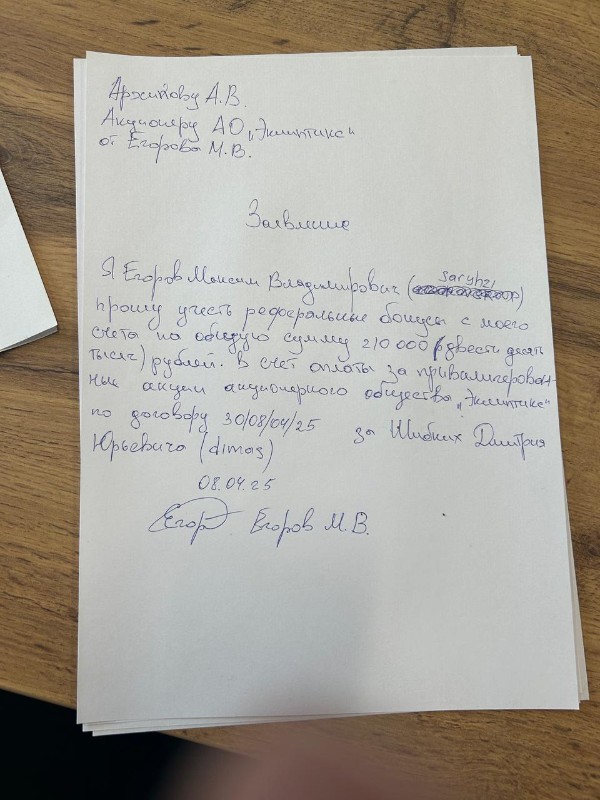 Архипову А.В.
Акционеру АО „Эклиптика"
от Егорова М.В.
Заявление
Я Егоров Максим Владимирович (
прошу учесть реферальные бонусы с моего
счета на общую сумму 210 000 (двести десять
тысяч) рублей. В счёт оплаты за привилигирован-
ные акции акционерного общества „Эклиптика"
по договору 30/08/04/25 за Шибких Дмитрия
Юрьевича (dimas)
08.04.25
Егоров М.В.